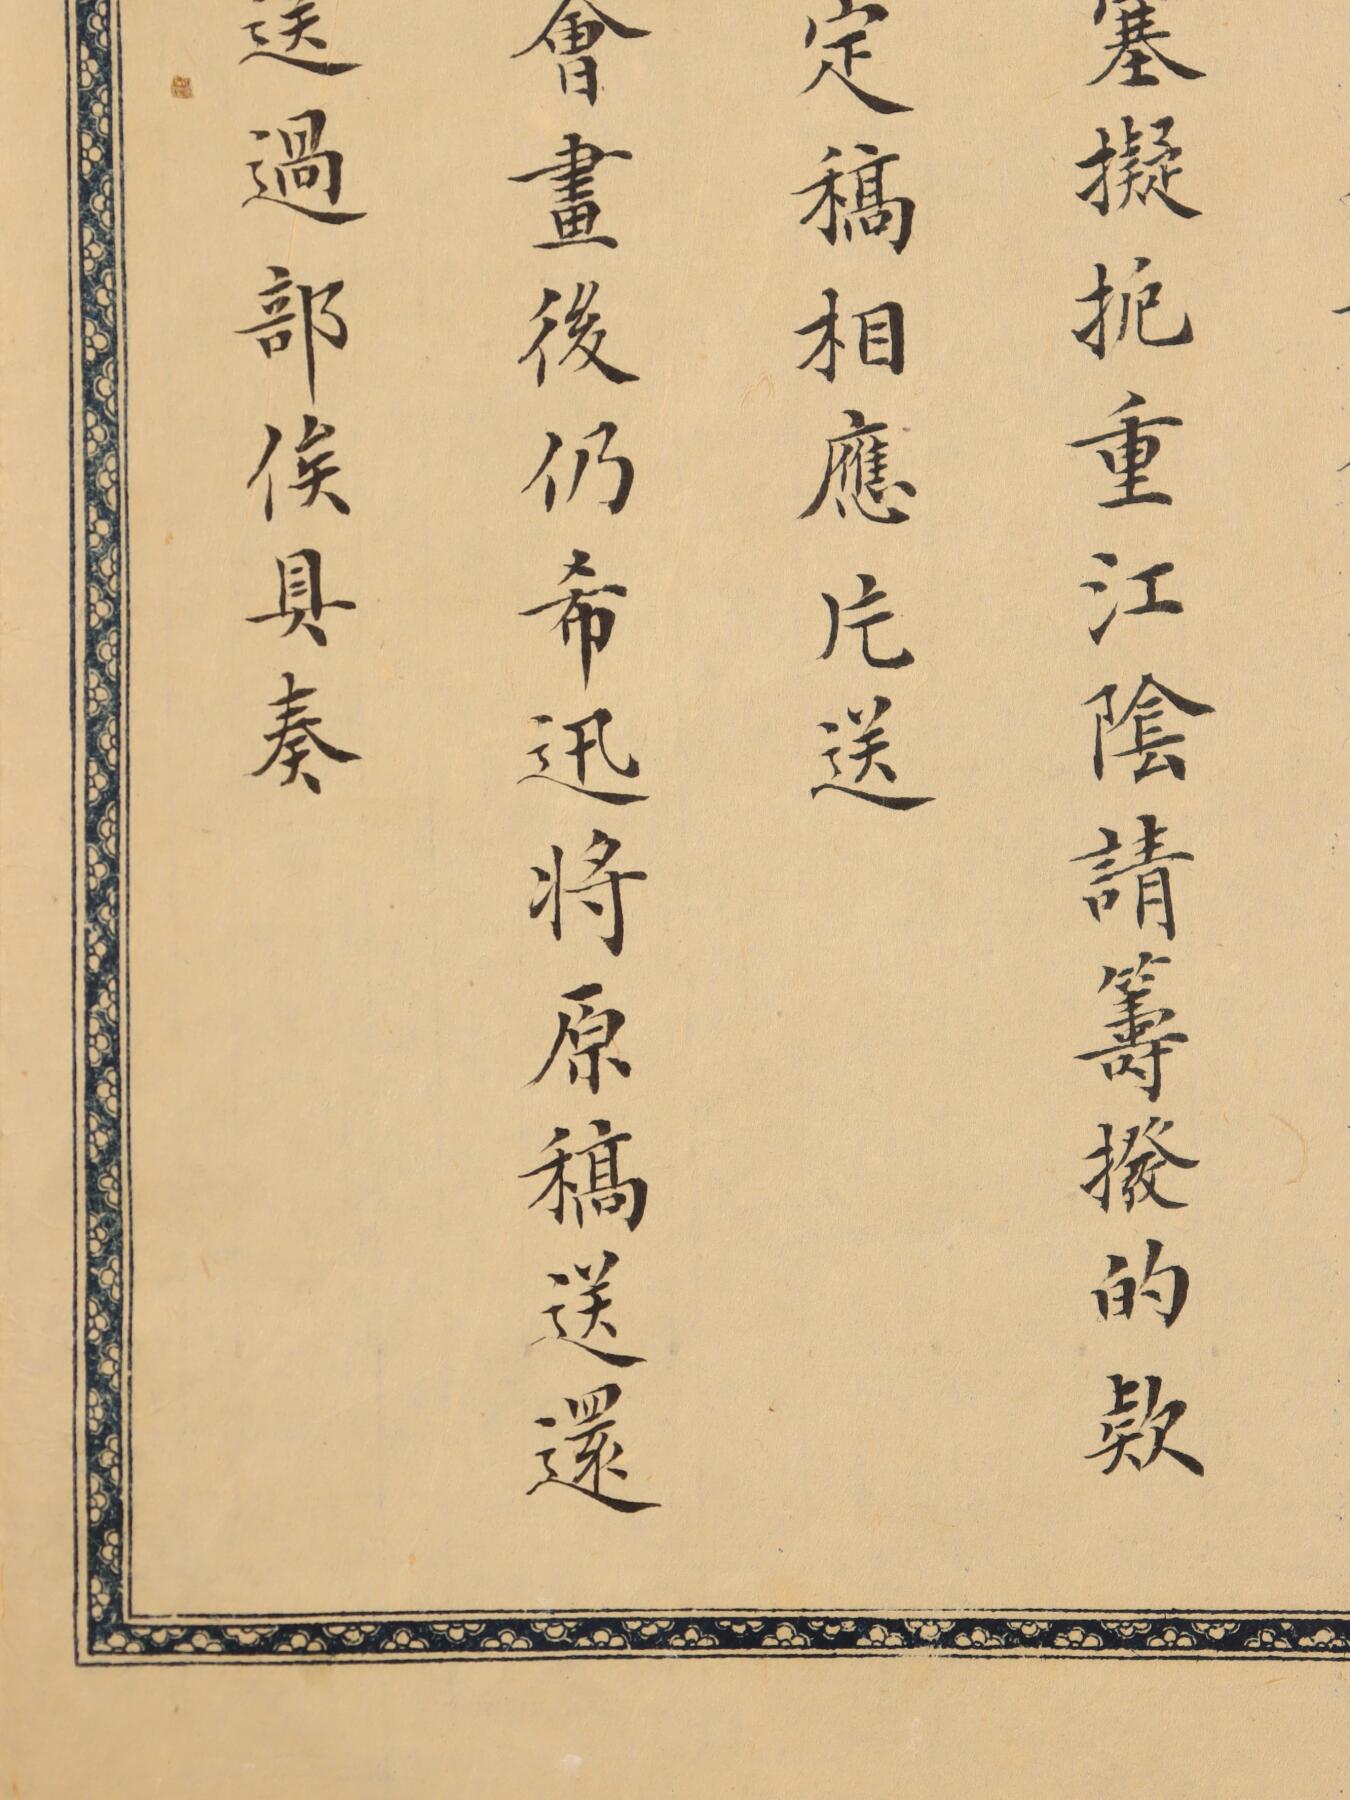 塞擬扼重江陰請籌撥的款
定稿相應片送
會畫後仍希迅将原稿送還
送過部俟具奏